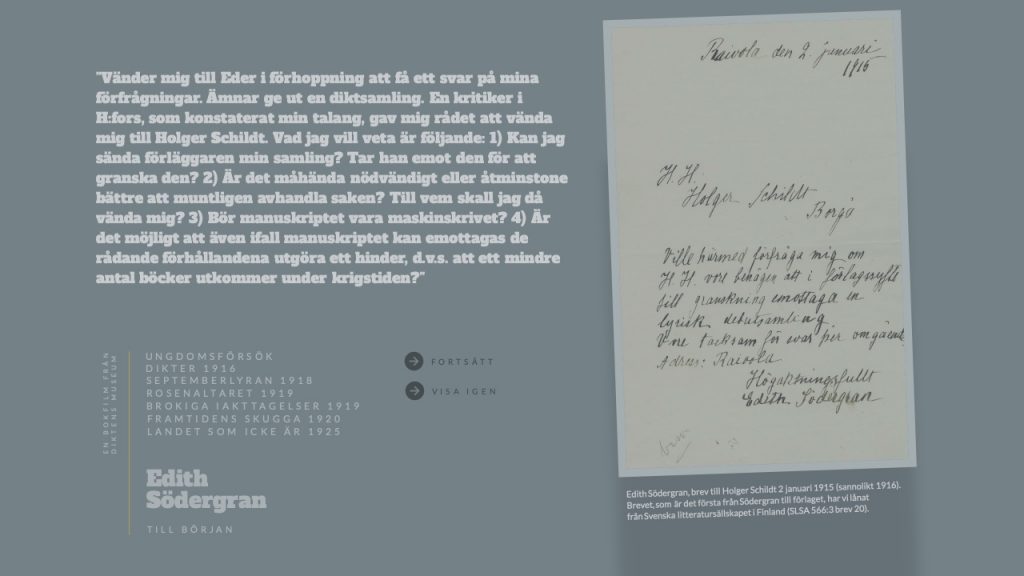 "Vänder mig till Eder i förhoppning att få ett svar på mina
förfrågningar. Ämnar ge ut en diktsamling. En kritiker i
H:fors, som konstaterat min talang, gav mig rådet att vända
mig till Holger Schildt. Vad jag vill veta är följande: 1) Kan jag
sända förläggaren min samling? Tar han emot den för att
granska den? 2) Är det måhända nödvändigt eller åtminstone
bättre att muntligen avhandla saken? Till vem skall jag då
vända mig? 3) Bör manuskriptet vara maskinskrivet? 4) Är
det möjligt att även ifall manuskriptet kan emottagas de
rådande förhållandena utgöra ett hinder, d.v.s. att ett mindre
antal böcker utkommer under krigstiden?"
EN BOKFILM FRÅN
DIKTENS MUSEUM
UNGDOMSFÖRSÖK
DIKTER 1916
SEPTEMBERLYRAN 1918
ROSENALTARET 1919
BROKIGA IAKTTAGELSER 1919
FRAMTIDENS SKUGGA 1920
LANDET SOM ICKE ÄR 1925
Edith
Södergran
TILL BÖRJAN
FORTSÄTT
VISA IGEN
Raivola den 2. januari
1915
H. H.
Holger Schildt
Borgå
Ville härmed förfråga mig om
H. H. vore benägen att i förlagssyfte
till granskning emottaga en
lyrisk debutsamling
Vore tacksam för svar per omgående
Adress: Raivola
Högaktningsfullt
Edith Södergran
Edith Södergran, brev till Holger Schildt 2 januari 1915 (sannolikt 1916).
Brevet, som är det första från Södergran till förlaget, har vi lånat
från Svenska litteratursällskapet i Finland (SLSA 566:3 brev 20).